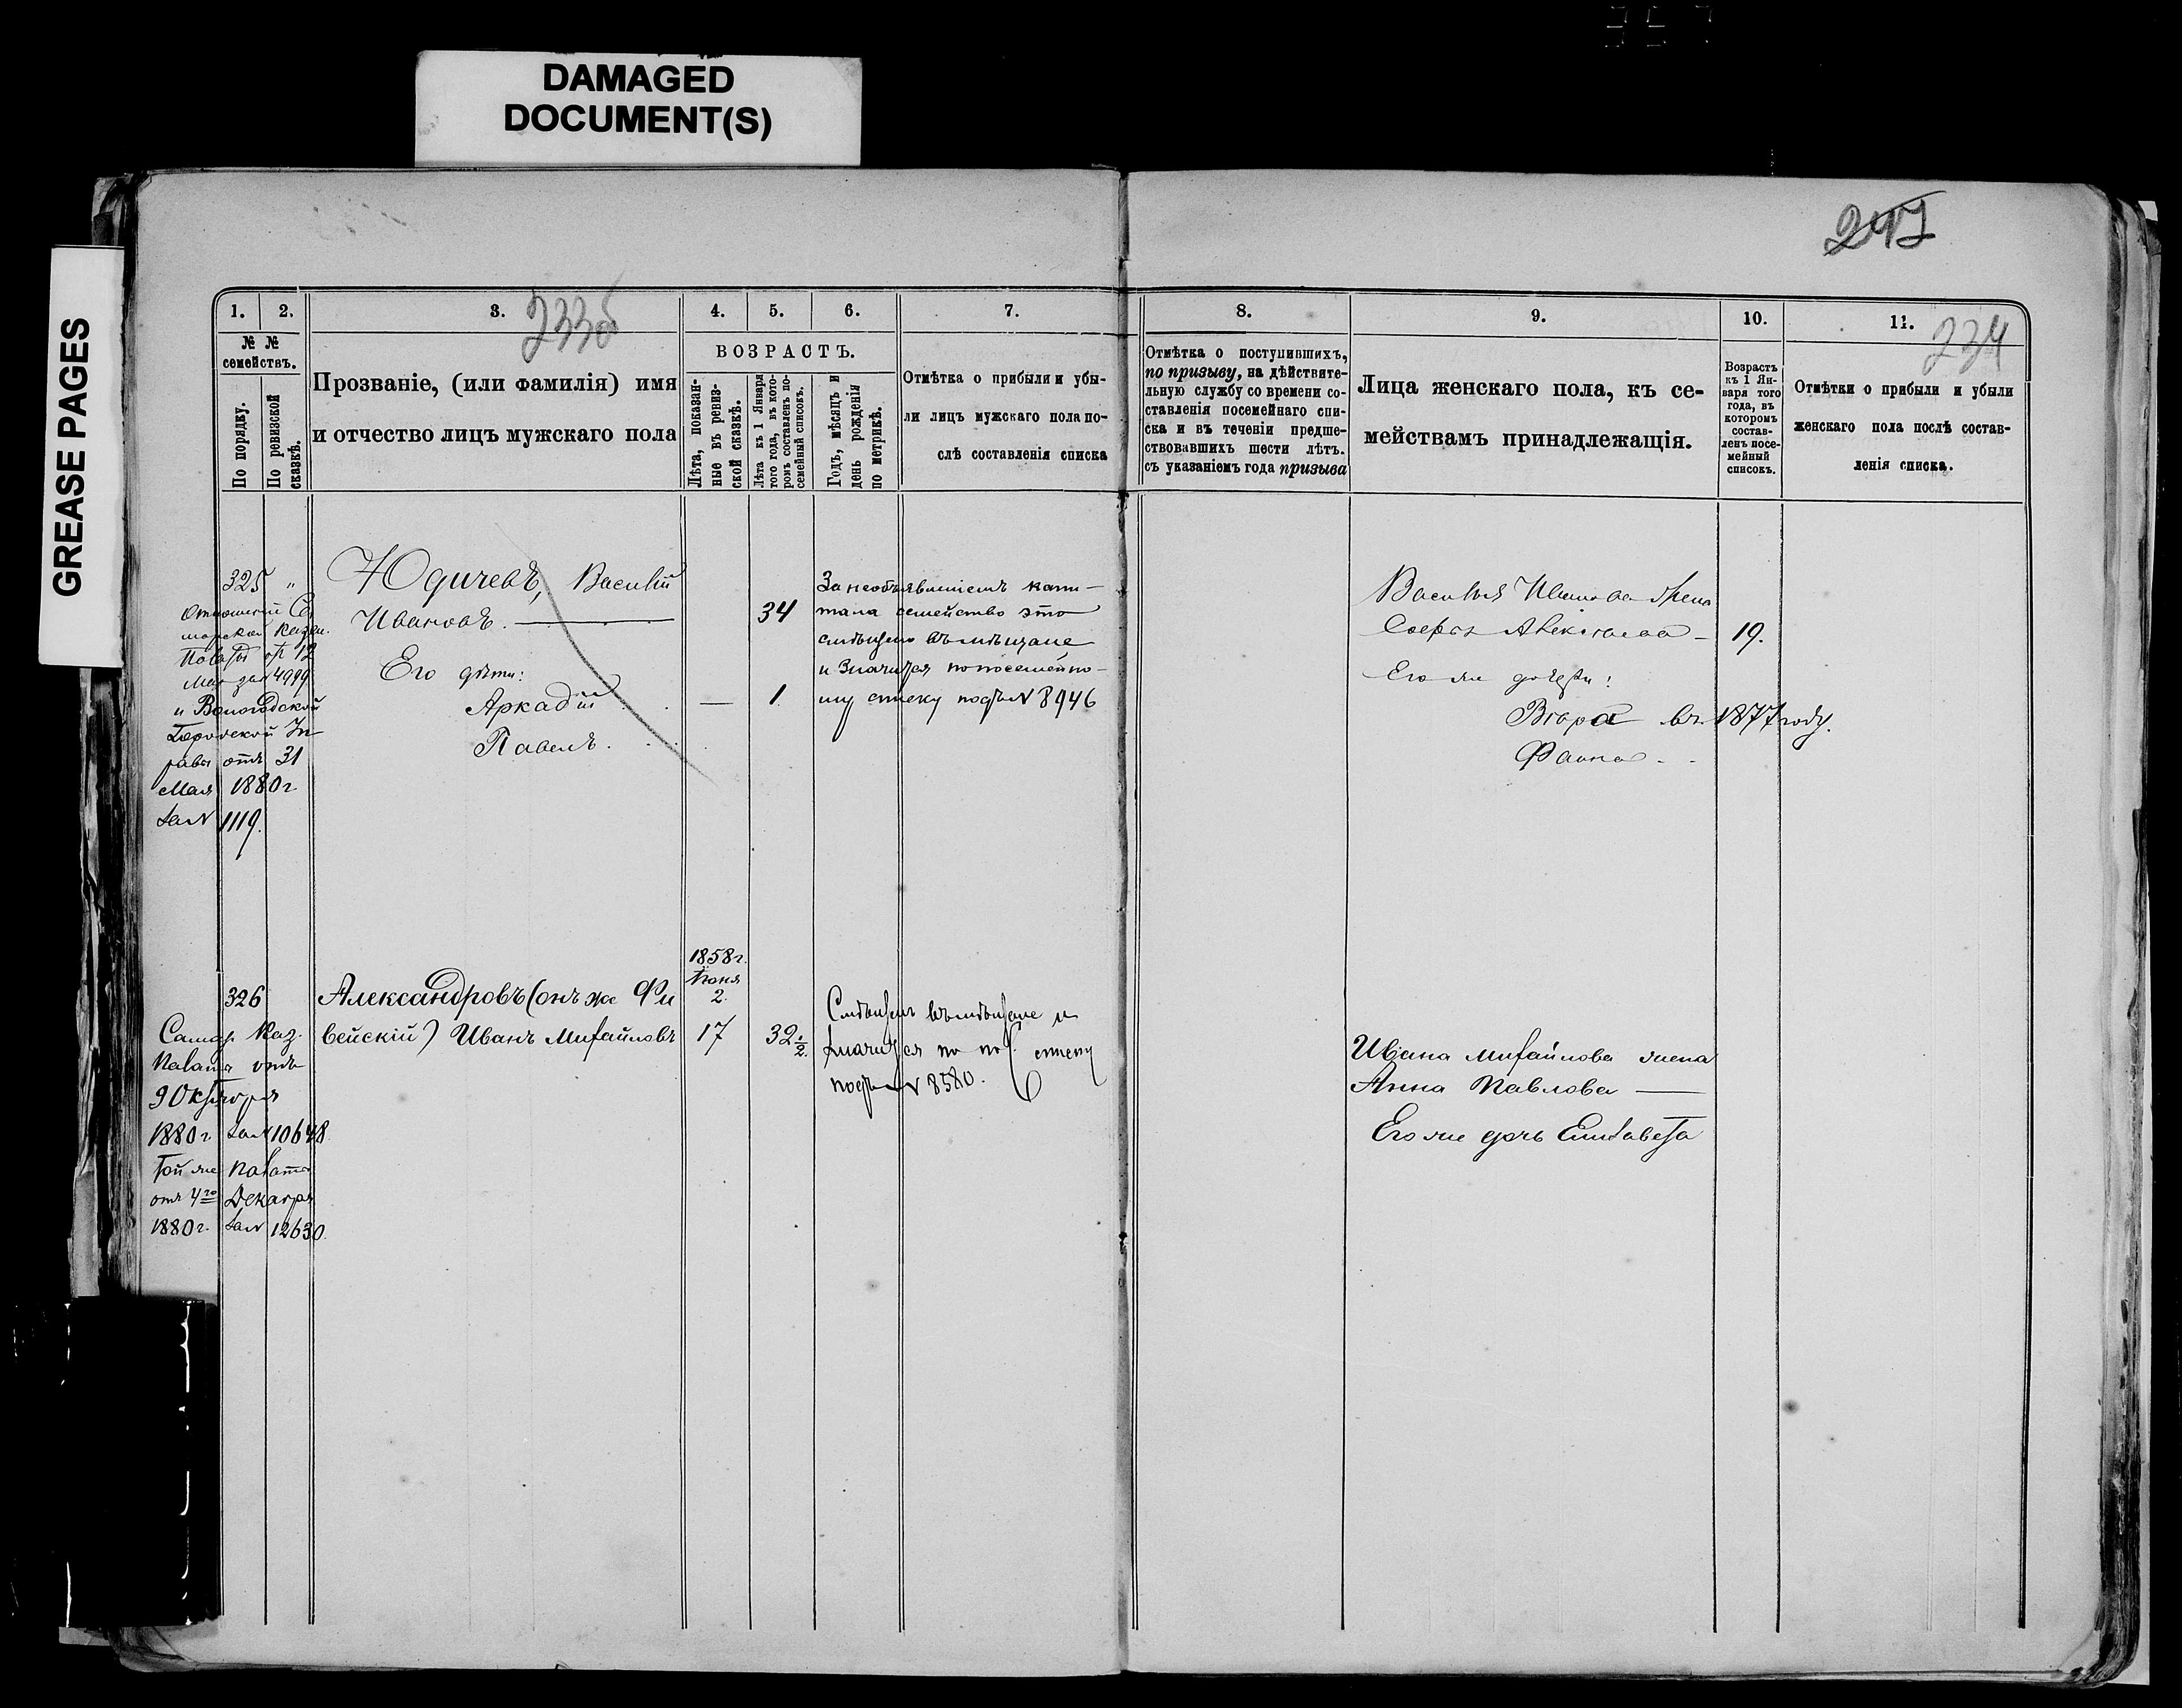 DAMAGED
DOCUMENT(S)
GREASE PAGES
247
233об
234
1.
2.
3.
4.
5.
6.
7.
8.
9.
10.
11.
№ №
семействъ.
По порядку.
По ревизской
сказкѣ.
Прозваніе, (или фамилія) имя
и отчество лицъ мужскаго пола
ВОЗРАСТЪ.
Лѣта, показан-
ные въ ревиз-
ской сказкѣ.
Лѣта къ 1 Января
того года, въ кото-
ромъ составленъ по-
семейный списокъ.
Годъ, мѣсяцъ и
день рожденія
по метрикѣ.
Отмѣтка о прибыли и убы-
ли лицъ мужскаго пола по-
слѣ составленія списка
Отмѣтка о поступившихъ,
по призыву, на дѣйствите-
льную службу со времени со-
ставленія посемейнаго спи-
ска и въ теченіи предше-
ствовавшихъ шести лѣтъ.
съ указаніемъ года призыва
Лица женскаго пола, къ се-
мействамъ принадлежащія.
Возрастъ
къ 1 Ян-
варя того
года, въ
которомъ
состав-
ленъ посе-
мейный
списокъ.
Отмѣтки о прибыли и убыли
женскаго пола послѣ состав-
ленія списка.
325 „
Отношеніи Са
марской казен.
Палаты от 12
Мая за № 4999
и Вологодской
Городской Уп
равы отъ 31
Мая 1880 г
за № 1119.
Юдичевъ, Василій
Ивановъ.
Его дѣти:
Аркадій
Павелъ.
34
— 1.
За необъявленіемъ капи-
тала семейство это
смѣщено въ мѣщане
и значится по посемейно-
му списку подъ № 8946
Василья Иванова жена
Софья Алексѣева — 19.
Его же дочери:
Вѣра въ 1877 году.
Фаина
326
Самар. Каз.
Палаты отъ
9 Октября
1880 г за № 10648
той же Палаты
отъ 4го Декабря
1880 г. за № 12630.
Александровъ (онъ же Фи
вейскій) Иванъ Михайловъ
1858 г.
Іюня
2.
17
32 1/2.
Смѣщенъ въ мѣщане и
значится по пос. списку
подъ № 8580.
Ивана Михайлова жена
Анна Павлова —
Его же дочь Елизавета